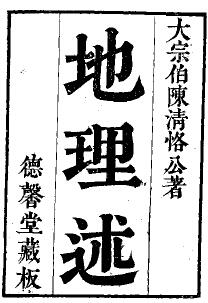 大宗伯陳清恪公著
地理述
德馨堂藏板